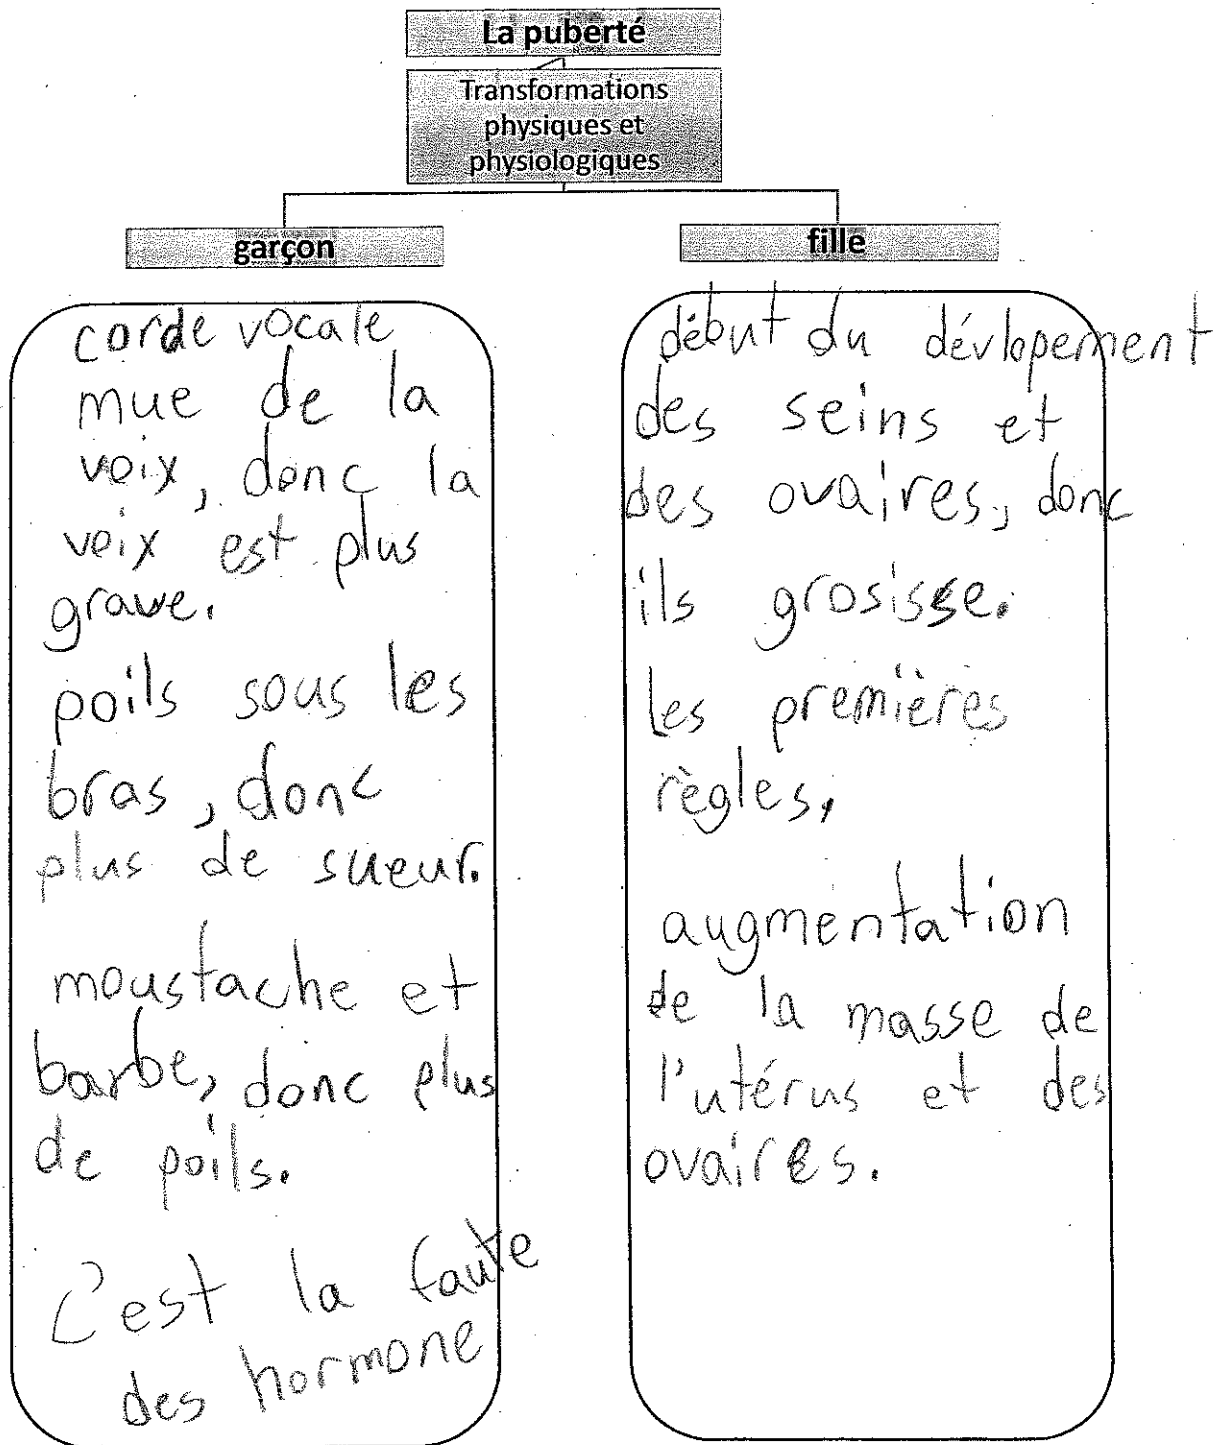 La puberté
Transformations
physiques et
physiologiques
garçon
corde vocale
mue de la
voix, donc la
voix est plus
grave.
poils sous les
bras, donc
plus de sueur.
moustache et
barbe, donc plus
de poils.
C'est la faute
des hormone
fille
début du dévlopement
des seins et
des ovaires, donc
ils grosisse.
les premières
règles,
augmentation
de la masse de
l'utérus et des
ovaires.